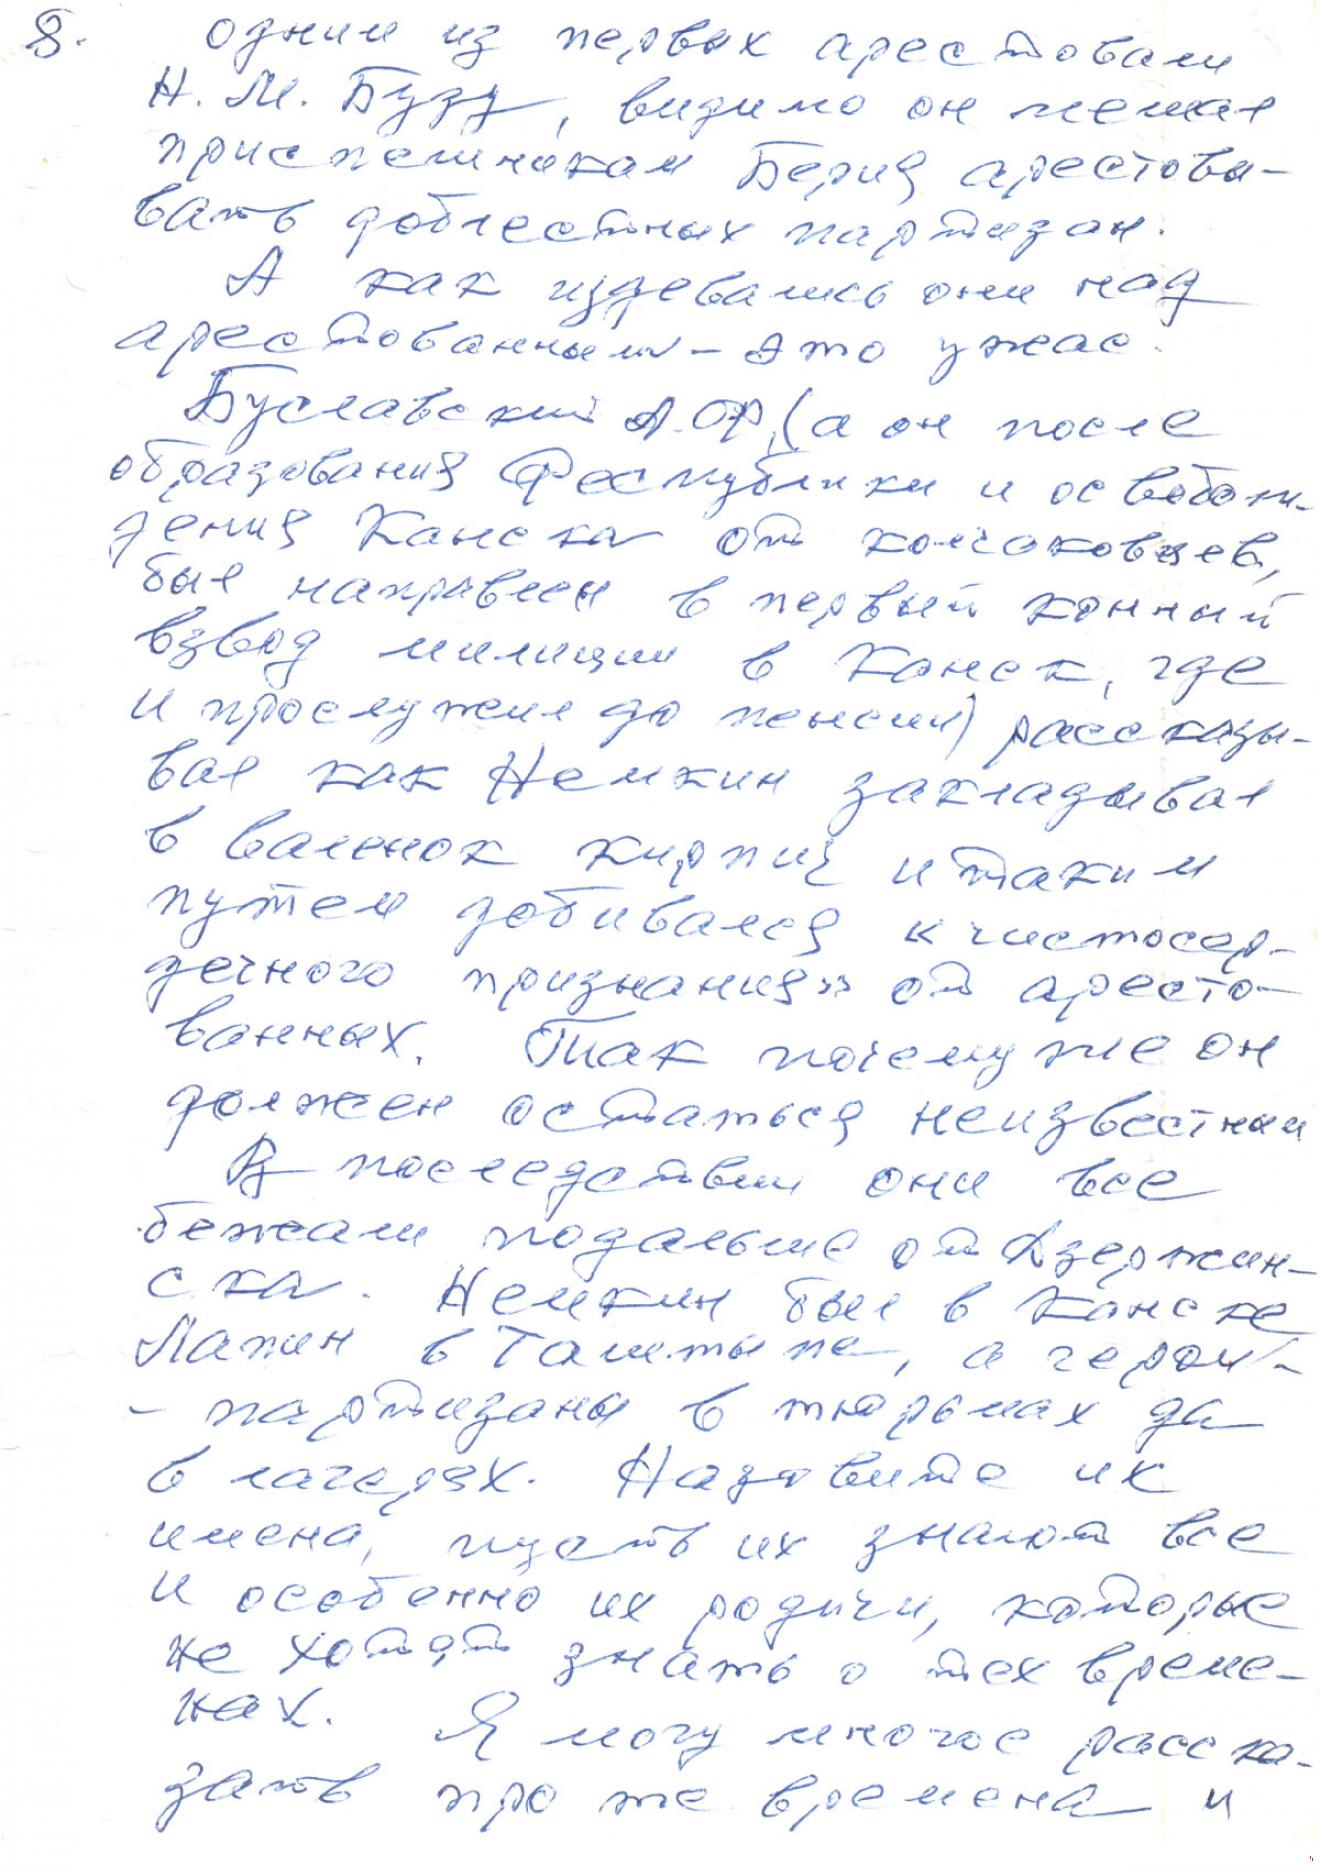 8. одним из первых арестовали
Н. М. Бузу, видимо он мешал
приспешникам Берия арестовы-
вать доблестных партизан.
А как издевались они над
арестованными – это ужас.
Буславский А.Ф. (а он после
образования Республики и освобож-
дения Канска от колчаковцев,
был направлен в первый конный
взвод милиции в Канск, где
и прослужил до пенсии) рассказы-
вал как Немкин закладывал
в валенок кирпич и таким
путем добивался «чистосер-
дечного признания» от аресто-
ванных. Так почему же он
должен остаться неизвестным
В последствии они все
бежали подальше от Дзержин-
ска. Немкин был в Канске
Лапин в Таштыпе, а герои-
- партизаны в тюрьмах да
в лагерях. Назовите их
имена, пусть их знают все
и особенно их родичи, которые
не хотят знать о тех време-
нах. Я могу многое расска-
зать про те времена и